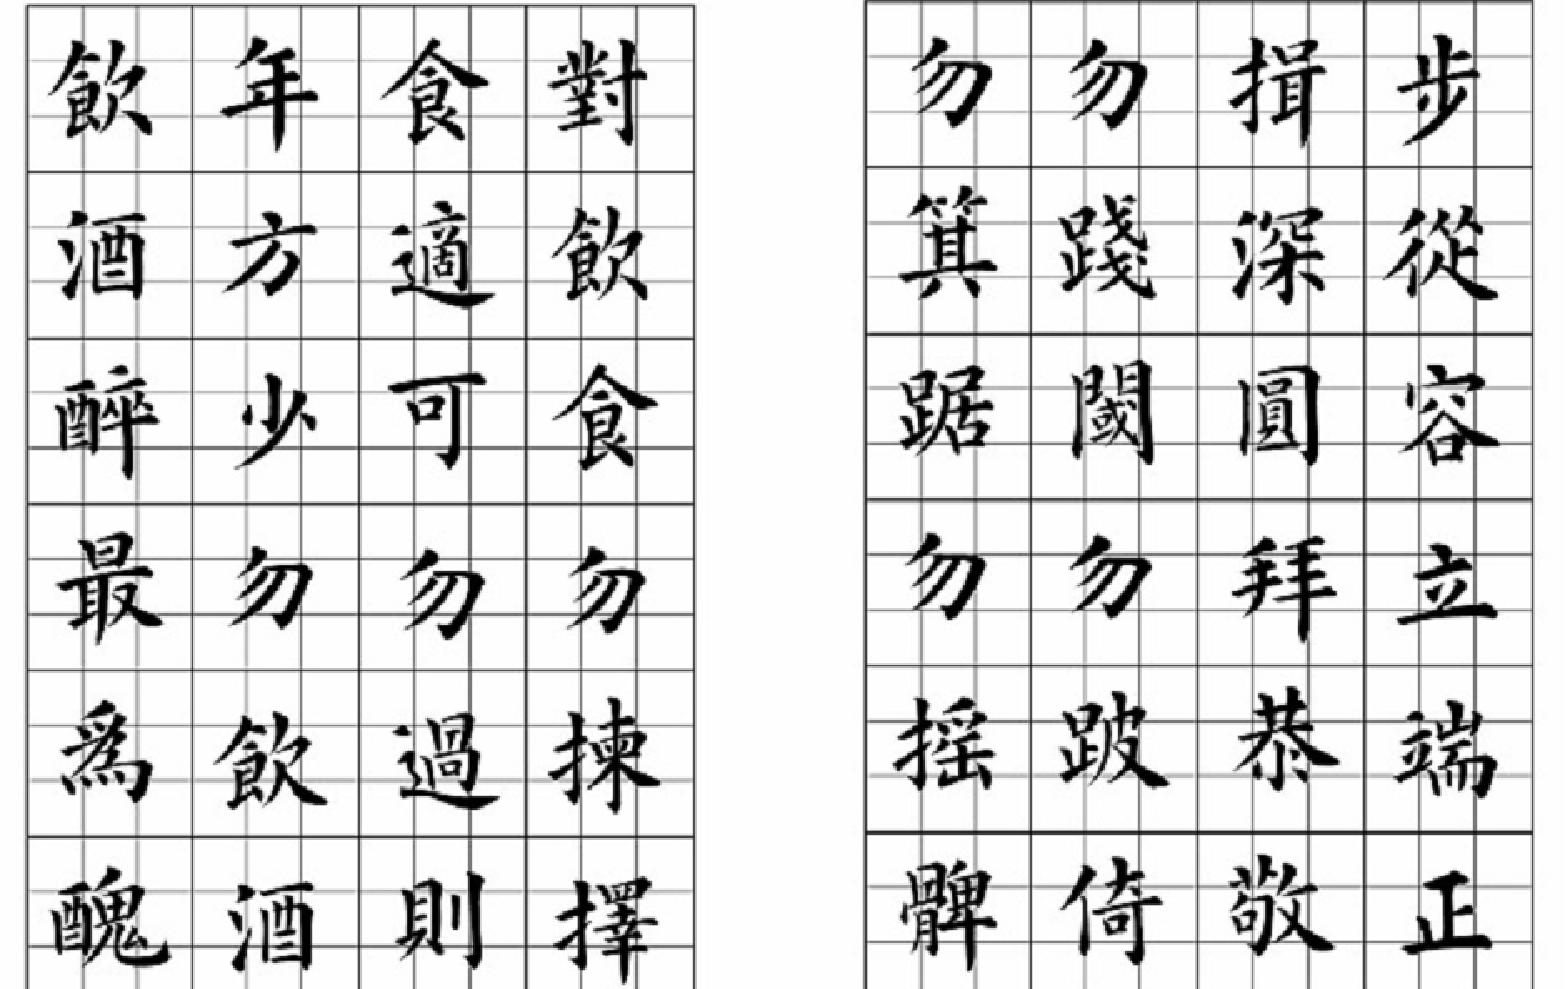 對飲食勿揀擇
食適可勿過則
年方少勿飲酒
飲酒醉最爲醜
步從容立端正
揖深圓拜恭敬
勿踐閾勿跛倚
勿箕踞勿摇髀